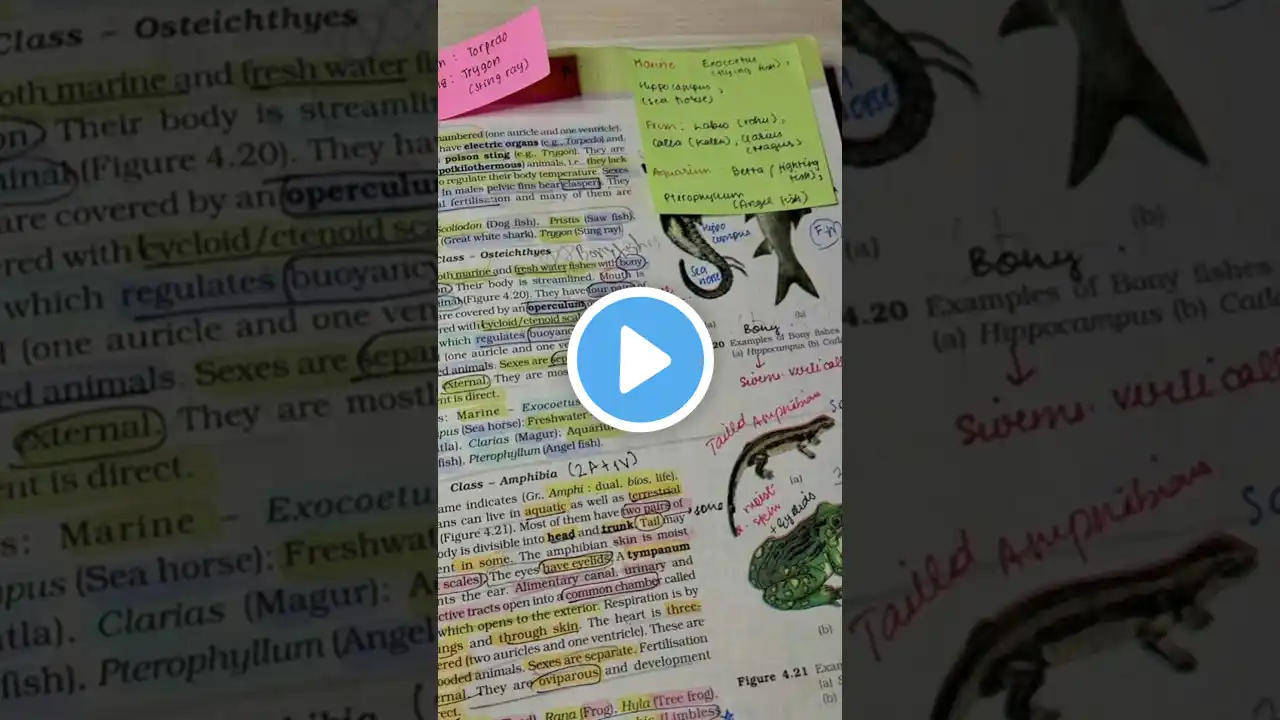 Class – Osteichthyes
oth marine and fresh water
Their body is streamli
(Figure 4.20). They ha
are covered by an operculum
red with cycloid/ctenoid sca
which regulates buoyancy
(one auricle and one ven
ed animals. Sexes are sepa
external. They are mostl
ent is direct.
s: Marine – Exocoetu
pus (Sea horse); Freshwat
tla), Clarias (Magur); A
fish), Pterophyllum (Angel
: Torpedo
: Trygon
(sting ray)
Marine Exocoetus
(flying fish),
Hippocampus,
(sea horse)
From: Labeo (rohu),
Catla (Katla), Clarius
(Magus)
Aquarium Betta (fighting
fish),
Pterophyllum
(Angel fish)
hambered (one auricle and one ventricle).
have electric organs (e.g., Torpedo) and
poison sting (e.g., Trygon). They are
(poikilothermous) animals, i.e., they lack
to regulate their body temperature. Sexes
In males pelvic fins bear claspers. They
al fertilisation and many of them are
Scoliodon (Dog fish), Pristis (Saw fish),
(Great white shark), Trygon (Sting ray).
Class – Osteichthyes
Bony fishes
oth marine and fresh water fishes with bony
Their body is streamlined. Mouth is
inal (Figure 4.20). They have four pairs of
are covered by an operculum
ered with cycloid/ctenoid sca
which regulates buoyanc
(one auricle and one ve
ed animals. Sexes are sep
external. They are mos
ent is direct.
s: Marine – Exocoetus
pus (Sea horse); Freshwater
tla), Clarias (Magur); Aquarium
fish), Pterophyllum (Angel fish).
Hippo
campus
Sea
horse
F.W
(a)
(b)
Bony
20 Examples of Bony fishes
(a) Hippocampus (b) Catl
swims vertical
Tailed Amphibian
(a)
moist
skin
+ eyelids
(b)
Class – Amphibia (2A+1V)
ame indicates (Gr., Amphi : dual, bios, life),
ans can live in aquatic as well as terrestrial
(Figure 4.21). Most of them have two pairs of
ody is divisible into head and trunk. Tail may
, some
ent in some. The amphibian skin is moist
scales). The eyes have eyelids. A tympanum
nts the ear. Alimentary canal, urinary and
ctive tracts open into a common chamber called
which opens to the exterior. Respiration is by
ngs and through skin. The heart is three-
ered (two auricles and one ventricle). These are
ooded animals. Sexes are separate. Fertilisation
ernal. They are oviparous and development
rect.
Rana (Frog), Hyla (Tree frog),
(Limbless
Figure 4.21 Exa
(a) S
(b)
horse
(a)
(b)
Bony
4.20 Examples of Bony fishes
(a) Hippocampus (b) Catl
swims vertical
Tailed Amphibian